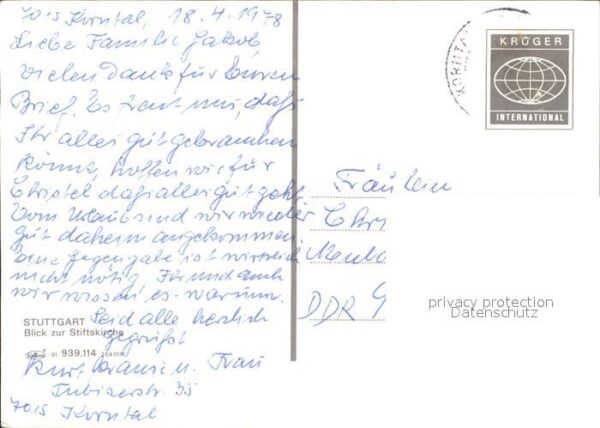 7015 Korntal, 18.4.1978
Liebe Familie Jakob,
Vielen Dank für Euren
Brief. Es freut uns, daß
Ihr alles gut gebrauchen
könnt, hoffen wir für
Christel daß alles gut geht.
Vom Urlaub sind wir wieder
gut daheim angekommen
Eine Gegengabe ist wirklich
nicht nötig. Ihr und auch
wir wissen es warum.
Seid alle herzlich
gegrüßt
Kurt Krause u. Frau
35
7015 Korntal
STUTTGART
Blick zur Stiftskirche
31 939.114
KRÜGER
INTERNATIONAL
KORNTA
Fräulein
Chri
DDR
privacy protection
Datenschutz